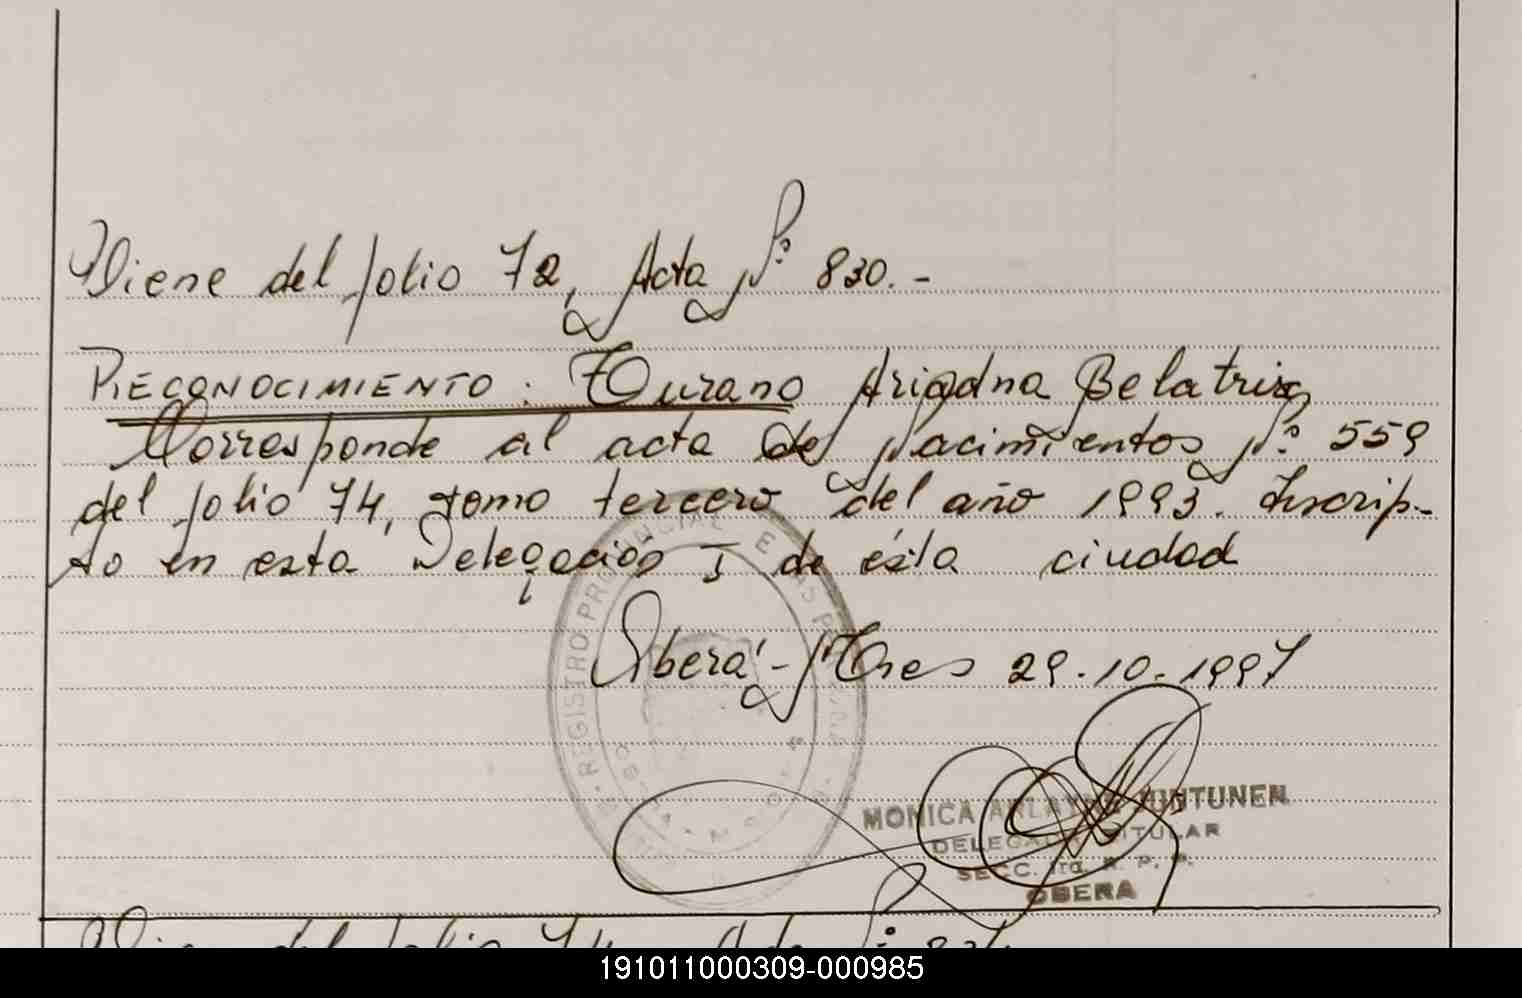 Viene del folio 72, Acta Nº 830.-
RECONOCIMIENTO: Turano Ariadna Belatrix
Corresponde al acta de Nacimientos Nº 559
del folio 74, tomo tercero del año 1993. Inscrip-
to en esta Delegación I de ésta ciudad
Oberá-Mnes 29.10.1997
REGISTRO PROVINCIAL DE LAS PERSONAS
MONICA JUNTUNEN
DELEGADA TITULAR
SECC. 1ra. R. P. P.
OBERA
Viene del folio 74, Acta Nº
191011000309-000985